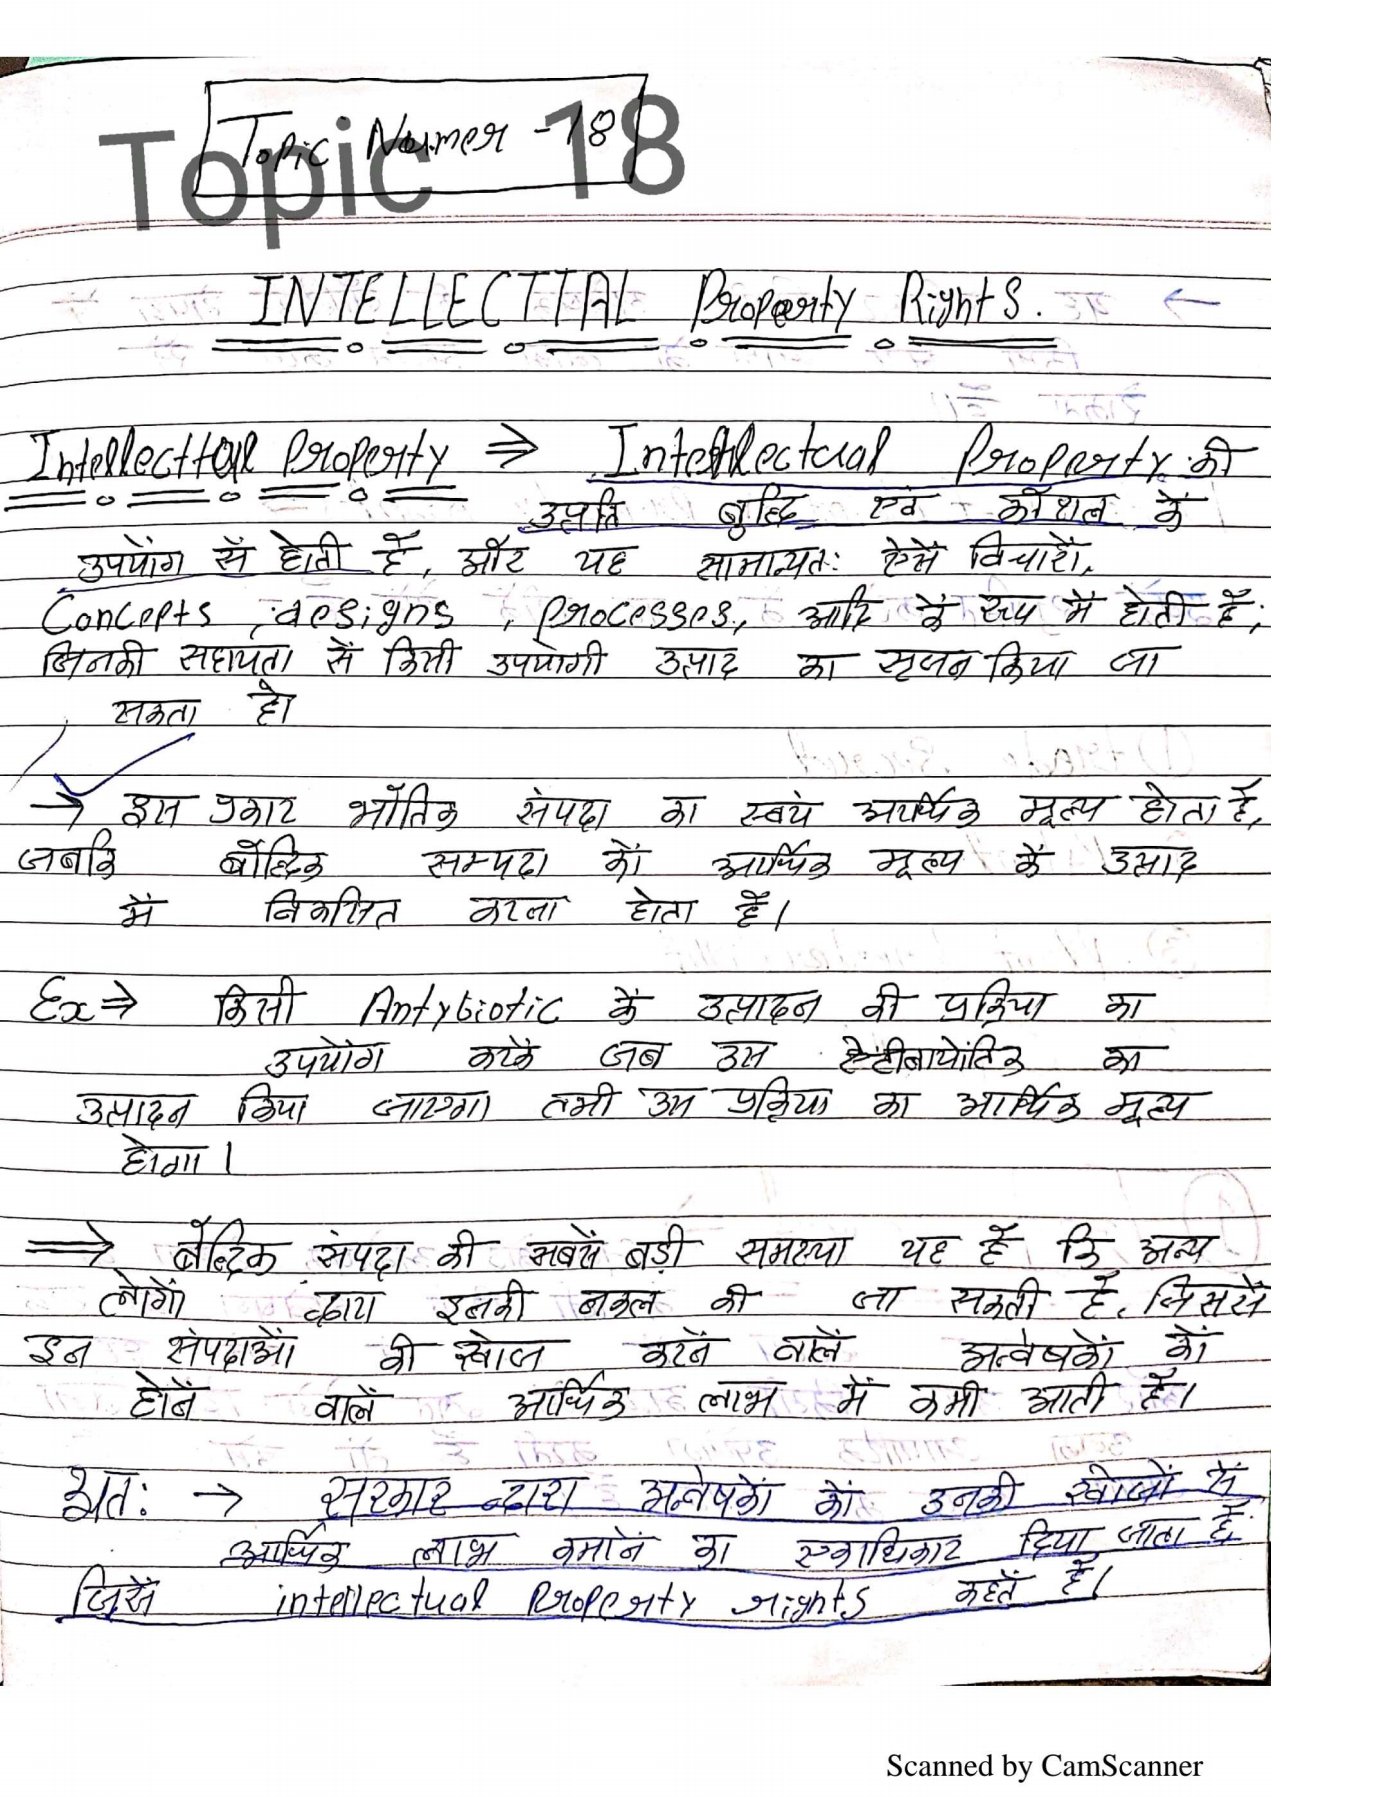 Topic 18
Topic Numer - 18
INTELLECTTAL Property Rights.
Intellecttal Property ⇒ Intellectual Property की
उत्पत्ति बुद्धि एवं कौशल के
उपयोग से होती है, और यह सामान्यतः ऐसे विचारों,
Concepts, designs, processes, आदि के रूप में होती है;
जिनकी सहायता से किसी उपयोगी उत्पाद का सृजन किया जा
सकता है।
→ इस प्रकार भौतिक संपदा का स्वयं आर्थिक मूल्य होता है,
जबकि बौद्धिक सम्पदा को आर्थिक मूल्य के उत्पाद
में विकसित करना होता है।
Ex ⇒ किसी Antybiotic के उत्पादन की प्रक्रिया का
उपयोग करके जब उस ऐन्टीबायोटिक का
उत्पादन किया जाएगा तभी उस प्रक्रिया का आर्थिक मूल्य
होगा।
⇒ बौद्धिक संपदा की सबसे बड़ी समस्या यह है कि अन्य
लोगों द्वारा इनकी नकल की जा सकती है, जिससे
इन संपदाओं की खोज करने वाले अन्वेषकों को
होने वाले आर्थिक लाभ में कमी आती है।
अतः → सरकार द्वारा अन्वेषकों को उनकी खोजों से
आर्थिक लाभ कमाने का एकाधिकार दिया जाता है;
जिसे intellectual Property rights कहते है।
Scanned by CamScanner